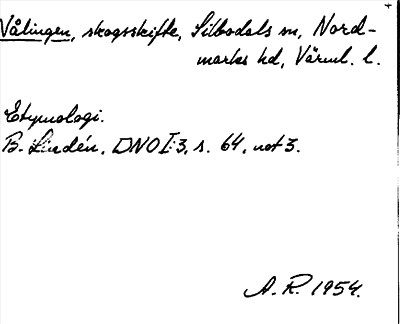 Vålingen, skogsskifte, Silbodals sn, Nord-
marks hd, Värml. l.
Etymologi.
B. Lindén, DNO I:3, s. 64, not 3.
A. R. 1954.